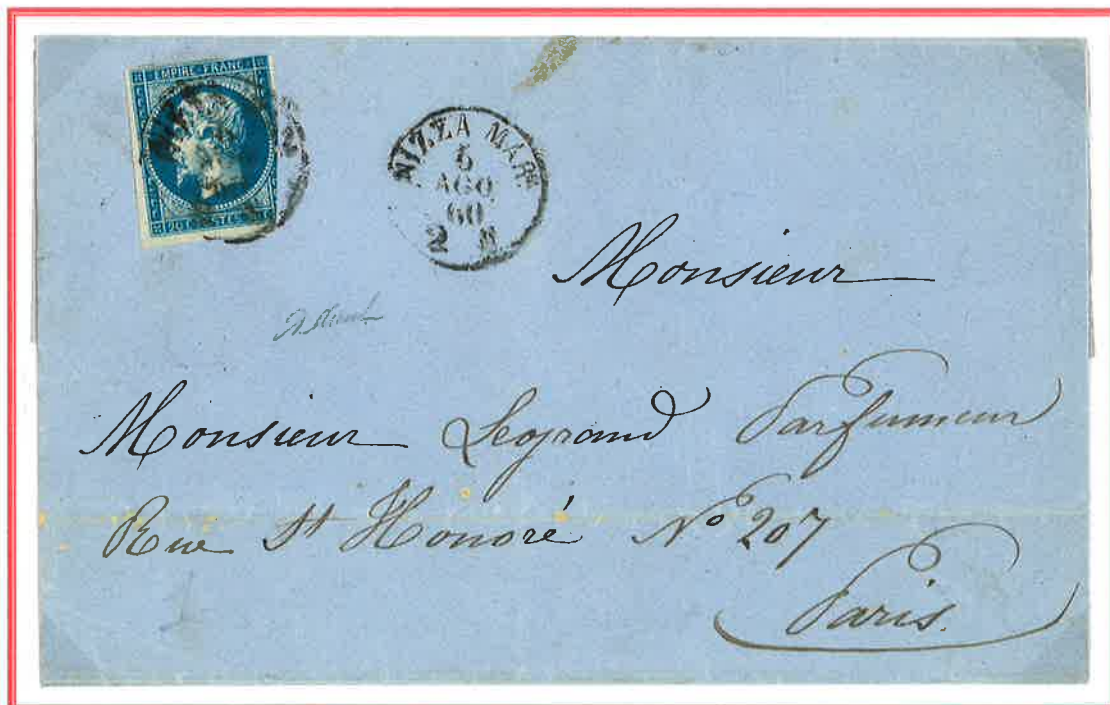 EMPIRE FRANC
NIZZA MARMA
5
AGO
60
2 S
Monsieur
Monsieur Legrand Parfumeur
Rue St Honoré Nº 207
Paris.